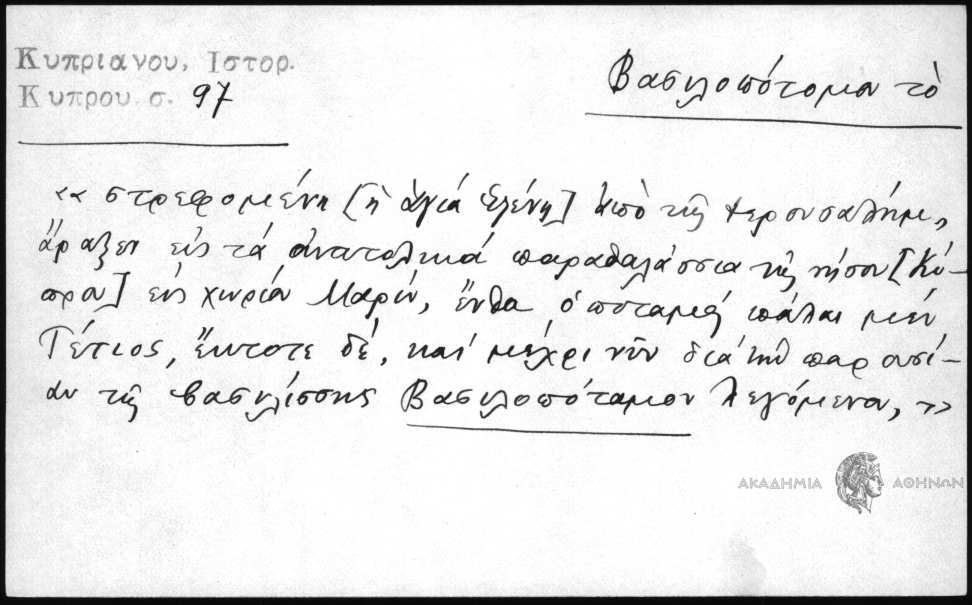 Κυπριανου, Ιστορ.
Κυπρου σ. 97
Βασιλοπόταμον τὸ
«στρεφομένη [ἡ ἁγία Ἑλένη] ἀπὸ τῆς Ἱερουσαλήμ,
ἄραξεν εἰς τὰ ἀνατολικὰ παραθαλάσσια τῆς νήσου [Κύ-
πρου] εἰς χωρίον Μαρίν, ἔνθα ὁ ποταμός πάλαι μέν
Τέτιος, ἔκτοτε δέ, καί μέχρι νῦν διά τήν παρουσί-
αν τῆς βασιλίσσης Βασιλοπόταμον λεγόμενον,»
ΑΚΑΔΗΜΙΑ ΑΘΗΝΩΝ